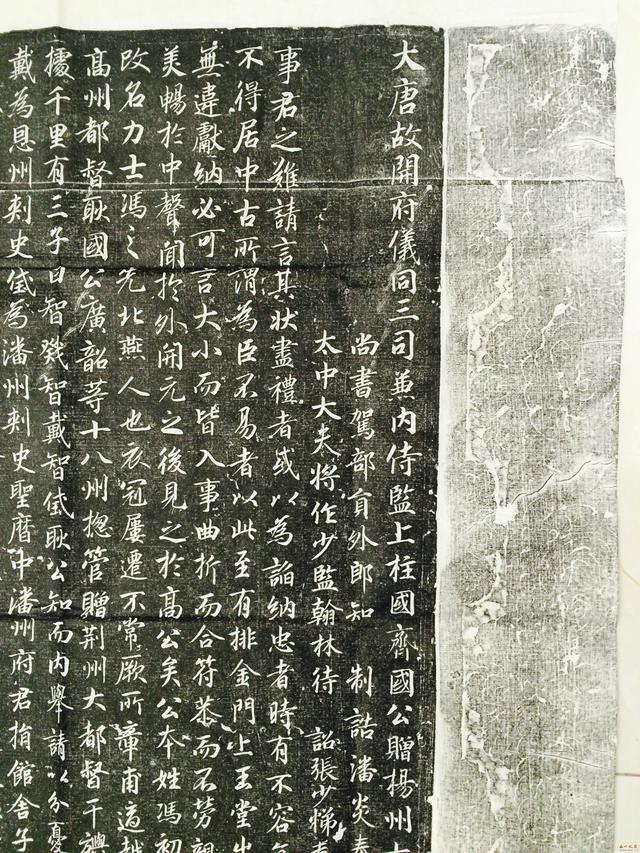 大唐故開府儀同三司兼內侍監上柱國齊國公贈楊州大
尚書駕部員外郎知 制誥潘炎奉
太中大夫將作少監翰林待 詔張少悌奉
事君之難請言其狀盡禮者或以為諂納忠者時有不容
不得居中古所謂為臣不易者以此至有排金門上玉堂出
無違獻納必可言大小而皆入事曲折而合符恭而不勞親
美暢於中聲聞於外開元之後見之於高公矣公本姓馮初
改名力士馮之先北燕人也衣冠屢遷不常厥所章甫適越
高州都督耿國公廣韶等十八州惣管贈荊州大都督干
擾千里有三子曰智戣智戴智玳耿公知而內舉請以分憂
戴為恩州刺史玳為潘州刺史聖曆中潘州府君捐館舍子